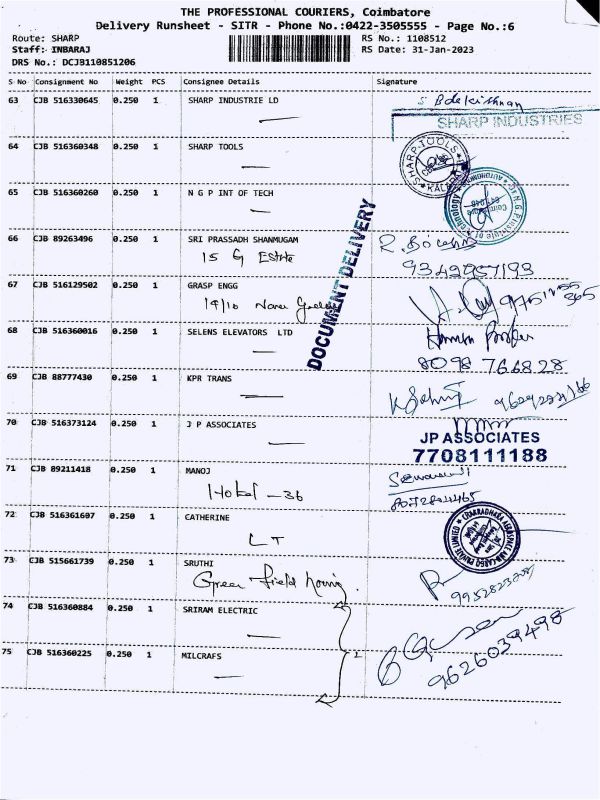 THE PROFESSIONAL COURIERS, Coimbatore
Delivery Runsheet - SITR - Phone No.:0422-3505555 - Page No.:6
Route: SHARP RS No.: 1108512
Staff: INBARAJ RS Date: 31-Jan-2023
DRS No.: DCJB110851206
S No Consignment No Weight PCS Consignee Details Signature
63 CJB 516330645 0.250 1 SHARP INDUSTRIE LD
SHARP INDUSTRIES
64 CJB 516360348 0.250 1 SHARP TOOLS
SHARP TOOLS
65 CJB 516360260 0.250 1 N G P INT OF TECH
66 CJB 89263496 0.250 1 SRI PRASSADH SHANMUGAM
15 G Estate
9342957193
DOCUMENT DELIVERY
67 CJB 516129502 0.250 1 GRASP ENGG
68 CJB 516360016 0.250 1 SELENS ELEVATORS LTD
8098 766828
69 CJB 88777430 0.250 1 KPR TRANS
70 CJB 516373124 0.250 1 J P ASSOCIATES
JP ASSOCIATES
7708111188
71 CJB 89211418 0.250 1 MANOJ
Hotel - 36
72 CJB 516361607 0.250 1 CATHERINE
LT
73 CJB 515661739 0.250 1 SRUTHI
Green field
74 CJB 516360884 0.250 1 SRIRAM ELECTRIC
9626039498
75 CJB 516360225 0.250 1 MILCRAFS